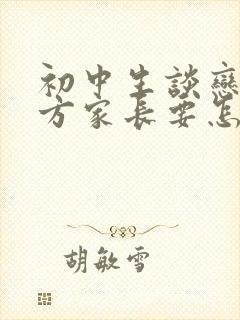 初中生談戀
方家長要怎
胡敏雪